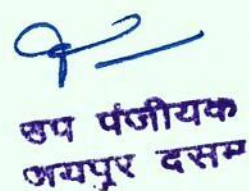 उप पंजीयक
जयपुर दसम